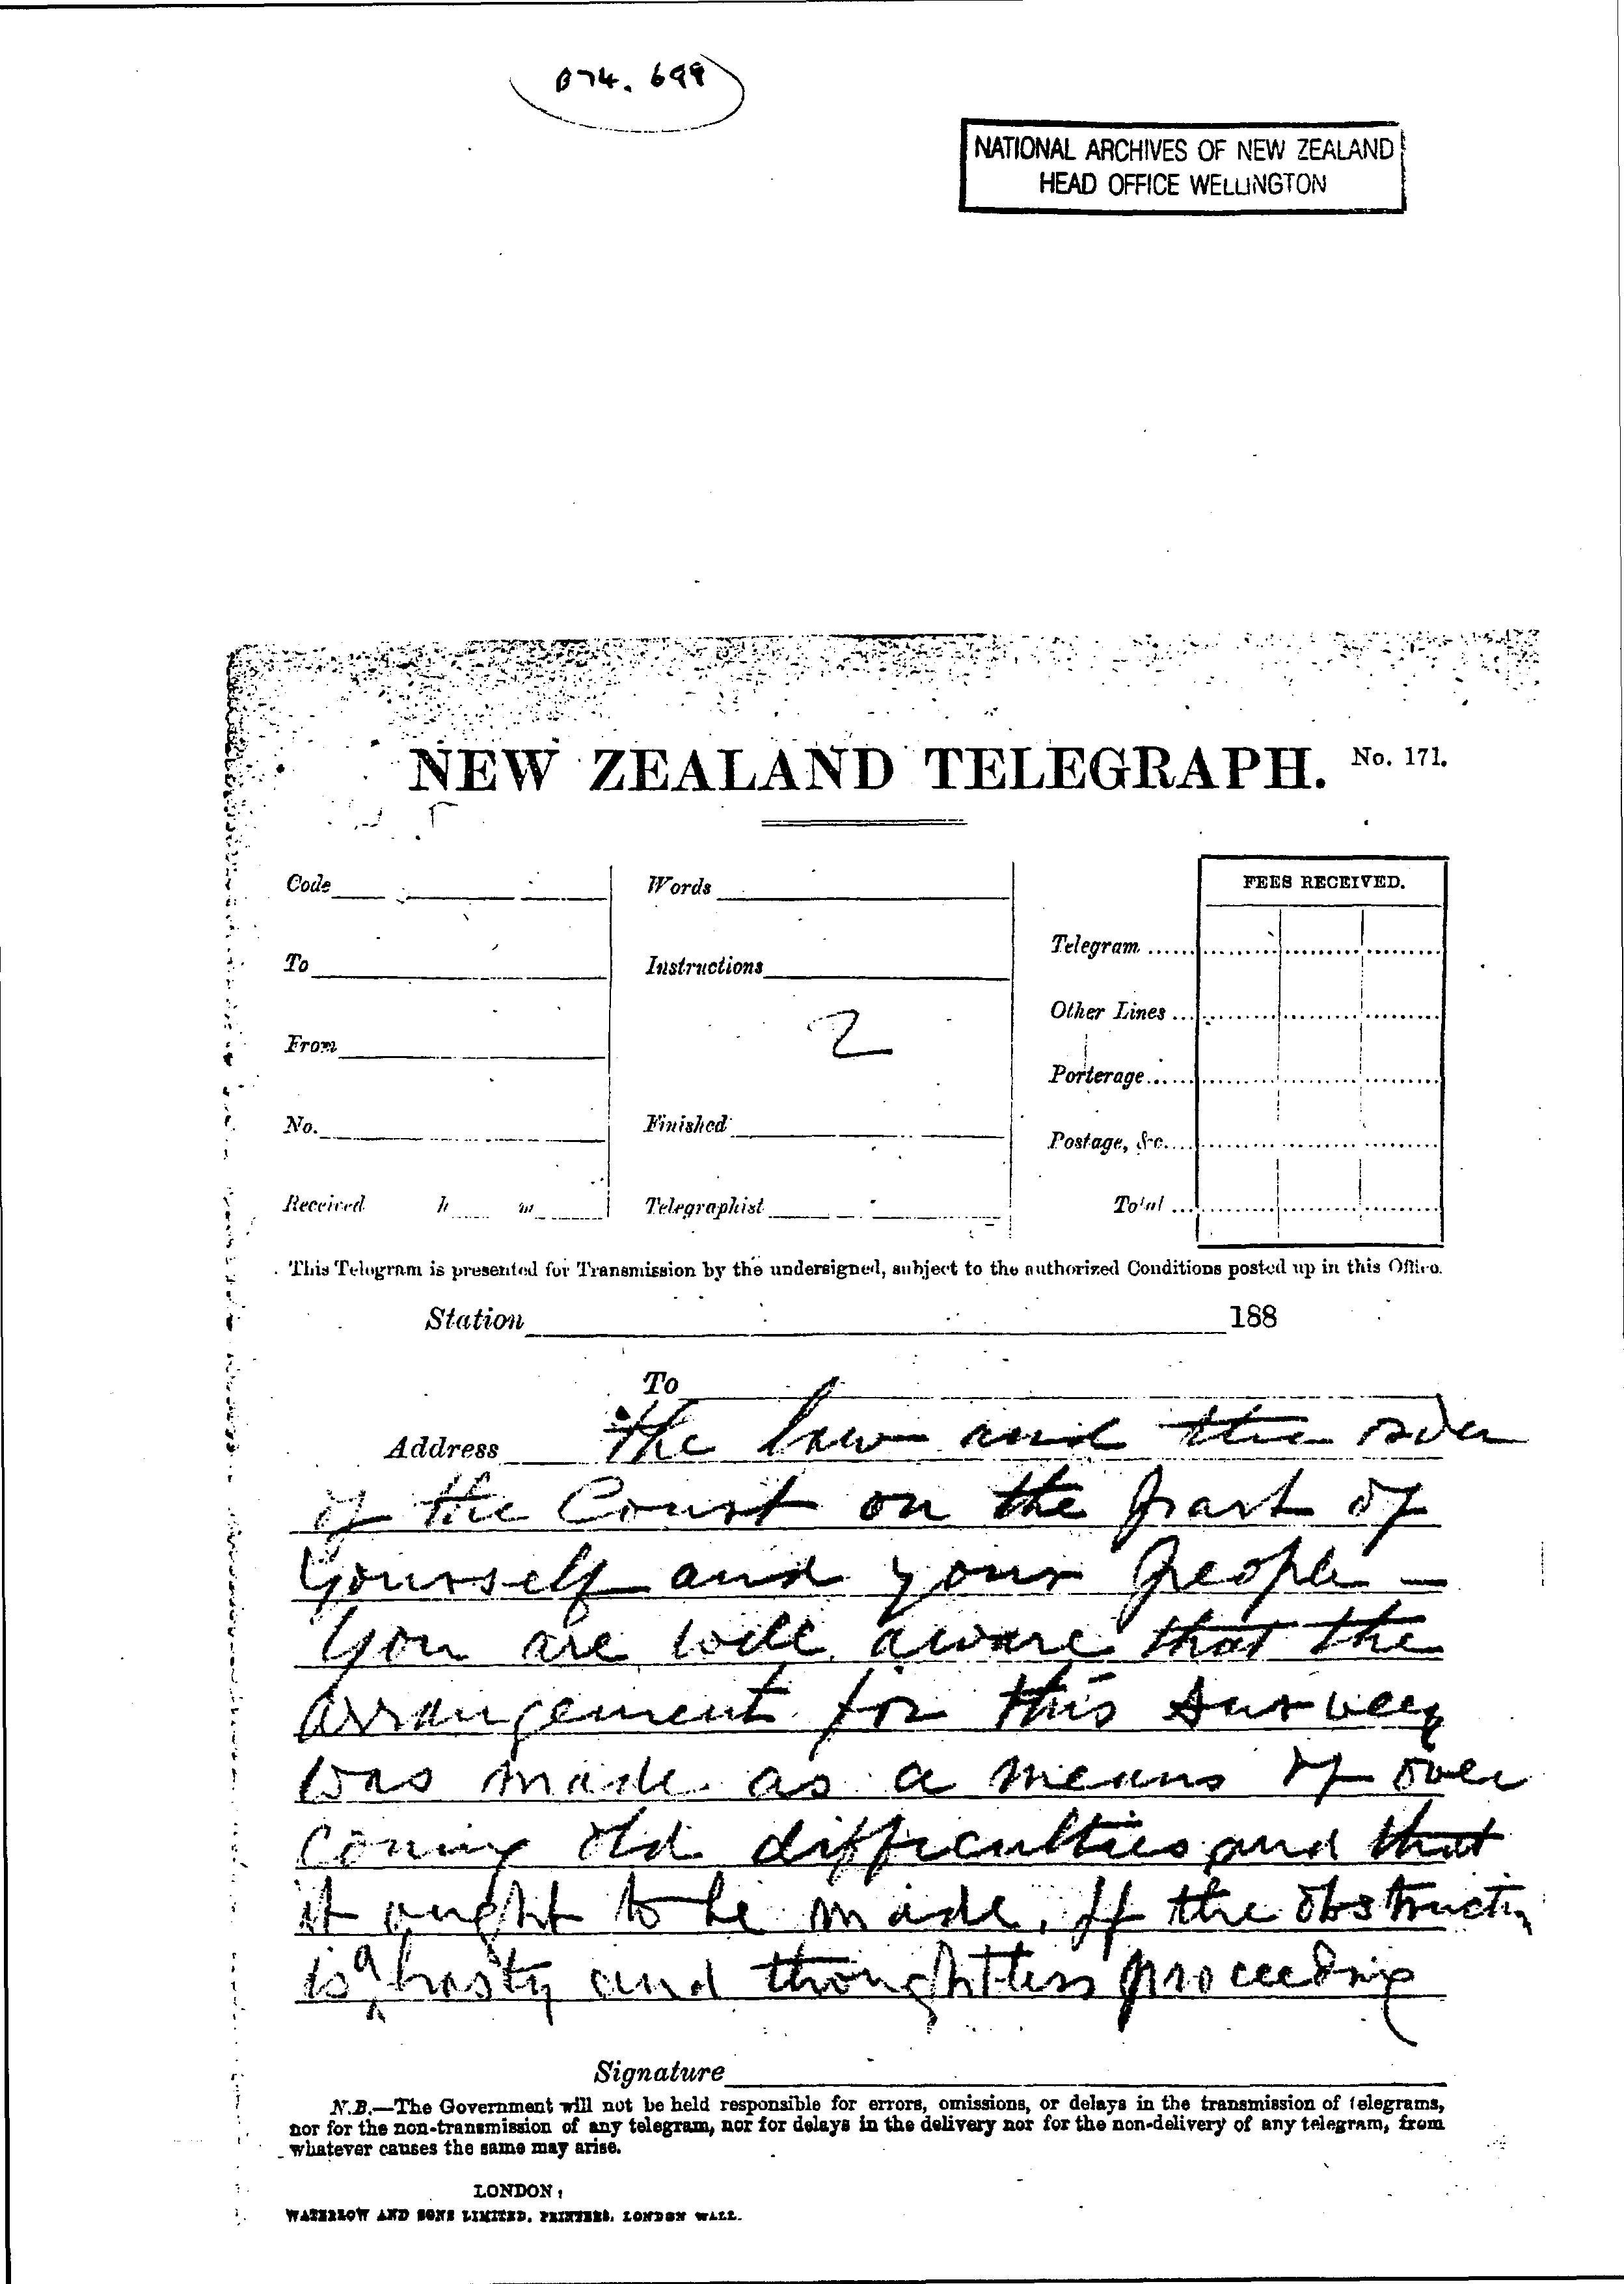 B74. 699
NATIONAL ARCHIVES OF NEW ZEALAND
HEAD OFFICE WELLINGTON
NEW ZEALAND TELEGRAPH. No. 171.
Code
Words
FEES RECEIVED.
To
Instructions
Telegram
2
Other Lines
From
Porterage
No.
Finished
Postage, &c.
Received h m
Telegraphist
Total
This Telegram is presented for Transmission by the undersigned, subject to the authorized Conditions posted up in this Office.
Station 188
To
Address the law and the order
of the Court on the part of
yourself and your people –
You are well aware that the
arrangement for this survey
was made as a means of over
coming old difficulties and that
it ought to be made. If the obstruction
is a hasty and thoughtless proceeding
Signature
N.B.—The Government will not be held responsible for errors, omissions, or delays in the transmission of telegrams,
nor for the non-transmission of any telegram, nor for delays in the delivery nor for the non-delivery of any telegram, from
whatever causes the same may arise.
LONDON:
WATERLOW AND SONS LIMITED, PRINTERS, LONDON WALL.